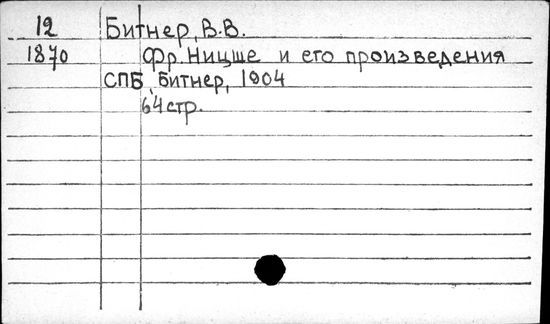 12 Битнер, В.В.
1870 Фр. Ницше и его произведения
СПБ, Битнер, 1904
64 стр.